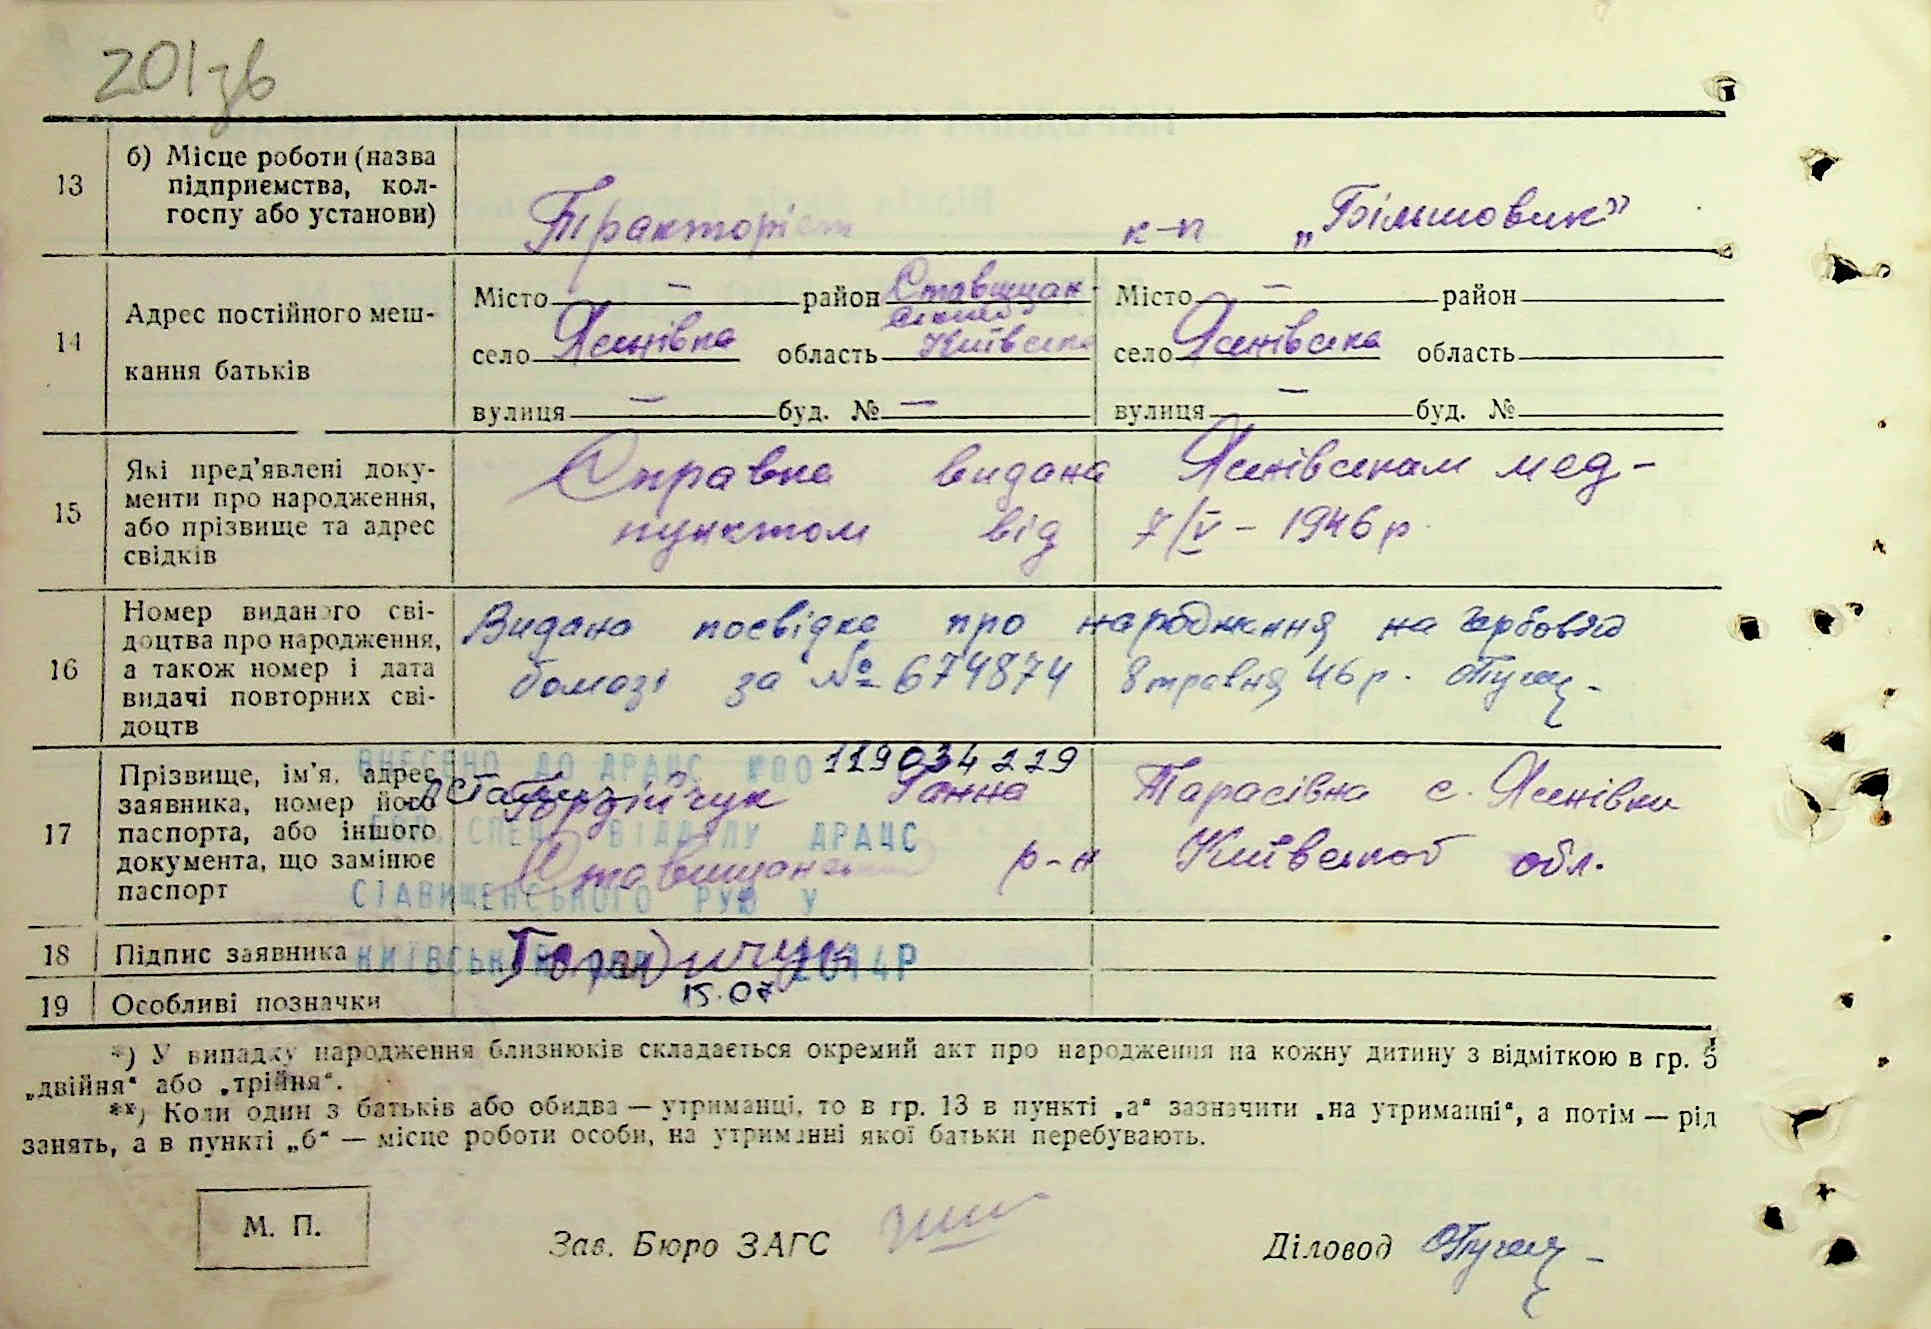 201зв
13 б) Місце роботи (назва
підприємства, кол-
госпу або установи)
Тракторіст к-п „Більшовик"
14 Адрес постійного меш-
кання батьків
Місто — район Ставищан-
ський
село Ясинівка область Київська
вулиця — буд. № —
Місто — район
село Ясинівска область
вулиця — буд. №
15 Які пред'явлені доку-
менти про народження,
або прізвище та адрес
свідків
Справка видана Ясинівскам мед-
пунктом від 7/IV – 1946 р.
16 Номер виданого сві-
доцтва про народження,
а також номер і дата
видачі повторних сві-
доцтв
Видана посвідка про народження на гербовій
бомазі за № 674874 8 травня 46 р.
17 Прізвище, ім'я, адрес
заявника, номер його
паспорта, або іншого
документа, що замінює
паспорт
ВНЕСЕНО ДО ДРАЦС 119034229
Гордійчук Ганна Тарасівна с. Ясинівка
ВІДДІЛУ ДРАЦС
Ставищанськ р-н Київської обл.
СТАВИЩЕНСЬКОГО РУЮ У
18 Підпис заявника Гордичук
2014Р
19 Особливі позначки 15.07
*) У випадку народження близнюків складається окремий акт про народження на кожну дитину з відміткою в гр. 5
„двійня" або „трійня".
**) Коли один з батьків або обидва — утриманці, то в гр. 13 в пункті „а" зазначити „на утриманні", а потім — рід
занять, а в пункті „б" — місце роботи особи, на утриманні якої батьки перебувають.
М. П.
Зав. Бюро ЗАГС
Діловод